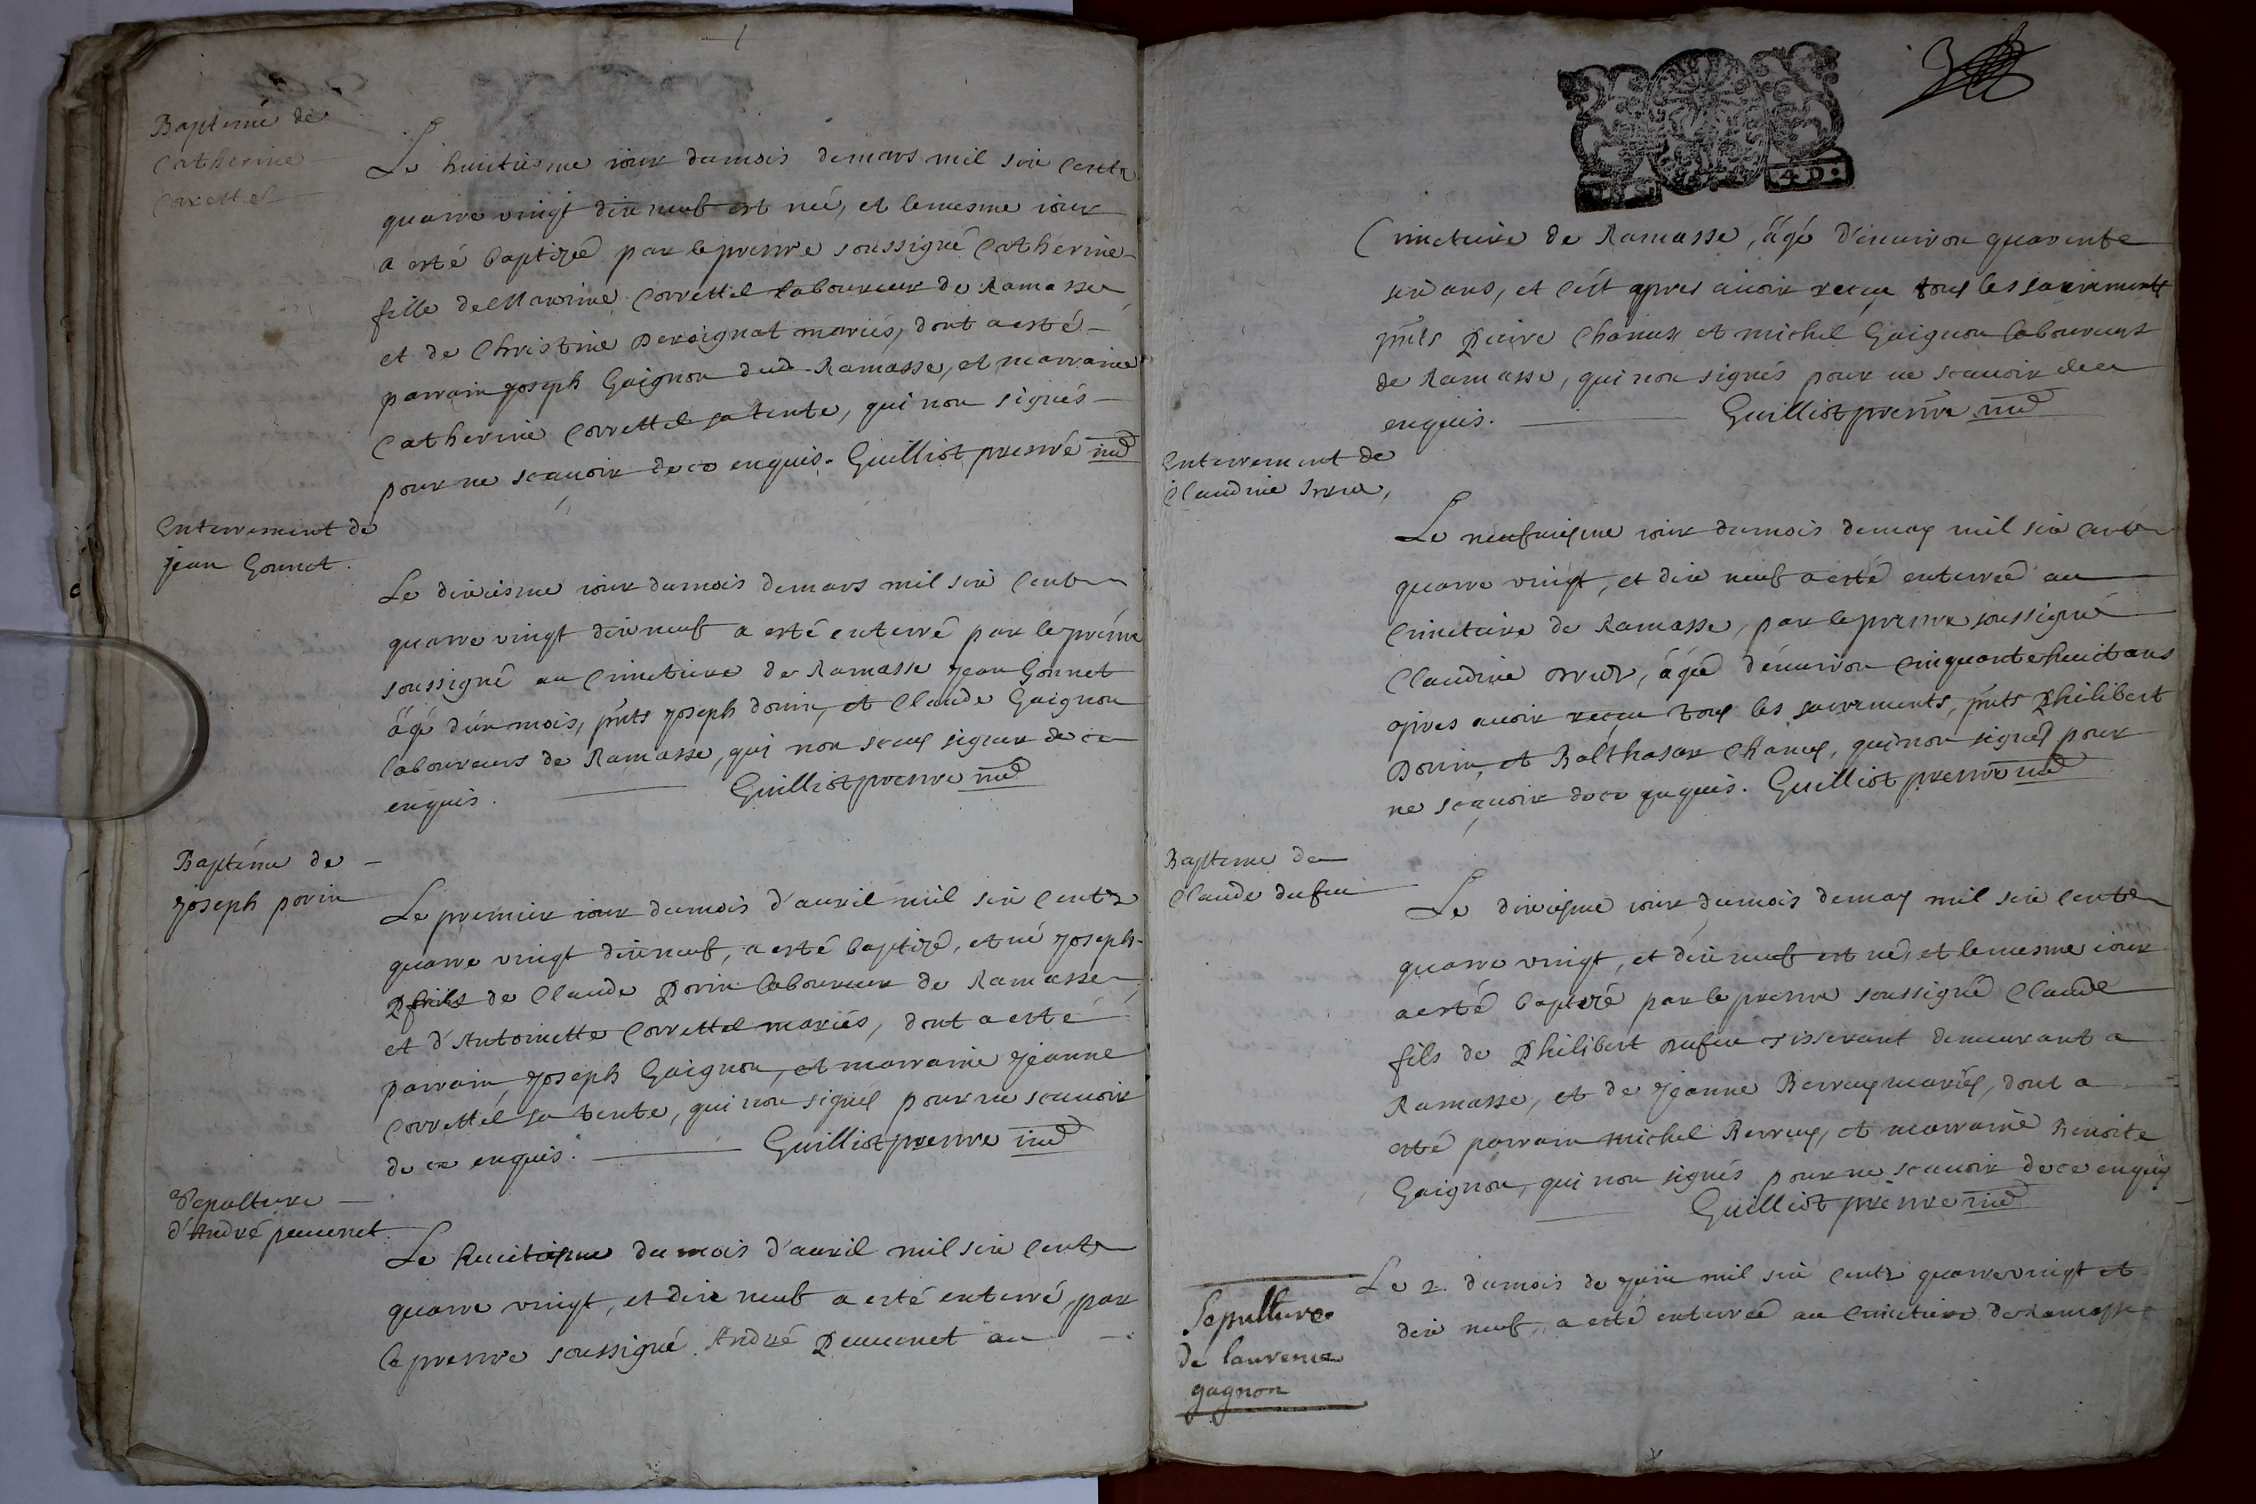 Baptemé de
Catherine
Corettel
Le huitiesme iour du mois de mars mil six centz
quatre vingt dix neuf est née, et le mesme iour
a esté baptizée par le prestre soussigné Catherine
fille de Maurice Correttel laboureur de Ramasse
et de Christine Peroignat mariés, dont a esté
parrain joseph Gaignon dud. Ramasse, et marraine
Catherine Correttel sa tente, qui non signés
pour ne scauoir de ce enquis. Guilliot prestre
Enterrement de
jean Gonnet.
Le dixiesme iour du mois de mars mil six centz
quatre vingt dix neuf a esté enterré par le prestre
soussigné au Cimetiere de Ramasse jean Gonnet
âgé d'un mois, pnts joseph dorin, et Claude Gaignon
laboureurs de Ramasse, qui non sceus signer de ce
enquis. Guilliot prestre
Baptéme de
joseph porin
Le premier iour du mois d'auril mil six centz
quatre vingt dix neuf, a esté baptizé, et né joseph
fils de Claude Porin laboureur de Ramasse
et d'Antoinette Correttel mariés, dont a esté
parrain, joseph Gaignon, et marraine jeanne
Correttel sa tente, qui non signés pour ne scauoir
de ce enquis. Guilliot prestre
Sepulture
d'André peuuenet
Le huictiesme du mois d'auril mil six centz
quatre vingt, et dix neuf a esté enterré, par
le prestre soussigné André Peuuenet au
Cimetiere de Ramasse, âgé d'enuiron quarente
six ans, et c'est apres auoir receu tous les sacrements
pnts Pierre Chanus et michel Gaignon laboureurs
de Ramasse, qui non signés pour ne scauoir de ce
enquis. Guilliot prestre
Enterrement de
Claudine
Le neufuiesme iour du mois de may mil six centz
quatre vingt, et dix neuf a esté enterreé au
Cimetiere de Ramasse, par le prestre soussigné
Claudine âgée d'enuiron cinquante huict ans
apres auoir receu tous les sacrements, pnts Philibert
Dorin, et Balthasar Chanus, qui non signés pour
ne scauoir de ce enquis. Guilliot prestre
Bapteme de
Claude dufeu
Le dixiesme iour du mois de may mil six centz
quatre vingt, et dix neuf est né, et le mesme iour
a esté baptizé par le prestre soussigné Claude
fils de Philibert Dufeu tisserant demeurant a
Ramasse, et de jeanne Berruy mariés, dont a
esté parrain michel Berruy, et marraine Benoite
Gaignon, qui non signés pour ne scauoir de ce enquis
Guilliot prestre
Sepulture
de laurence
gagnon
Le 2. du mois de juin mil six centz quatre vingt et
dix neuf, a esté enterreé au Cimetiere de Ramasse